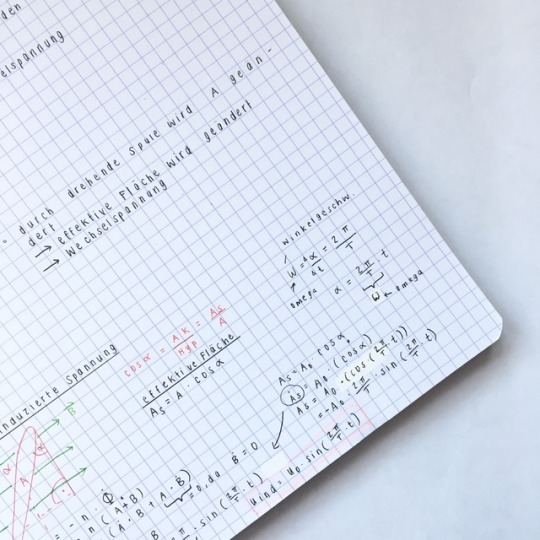 den
elspannung
durch drehende Spule wird A geän-
dert
→ effektive Fläche wird geändert
→ Wechselspannung
winkelgeschw.
W = Δα/Δt = 2π/T
omega α = 2π/T · t
W ← omega
cos α = AK/Hyp = As/A
effektive Fläche
As = A · cos α
nduzierte Spannung
B
α
α
A
As = A₀ · cos α
Ȧs = A₀ · (cos α)
Ȧs = A₀ · (cos(2π/T · t))
= -A₀ · 2π/T · sin(2π/T · t)
= - n · Φ̇
n (A + B)
(Ȧ · B + A · Ḃ)
= 0, da Ḃ = 0
· sin(2π/T · t)
Uind = U₀ · sin(2π/T · t)